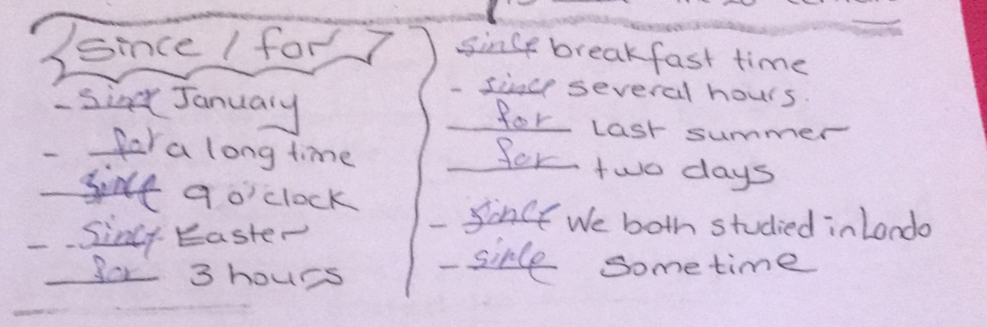 since / for
- since January
- for a long time
since 9 o'clock
- since Easter
for 3 hours
since breakfast time
- since several hours.
for Last summer
for two days
- since We both studied in Londo
- since Some time